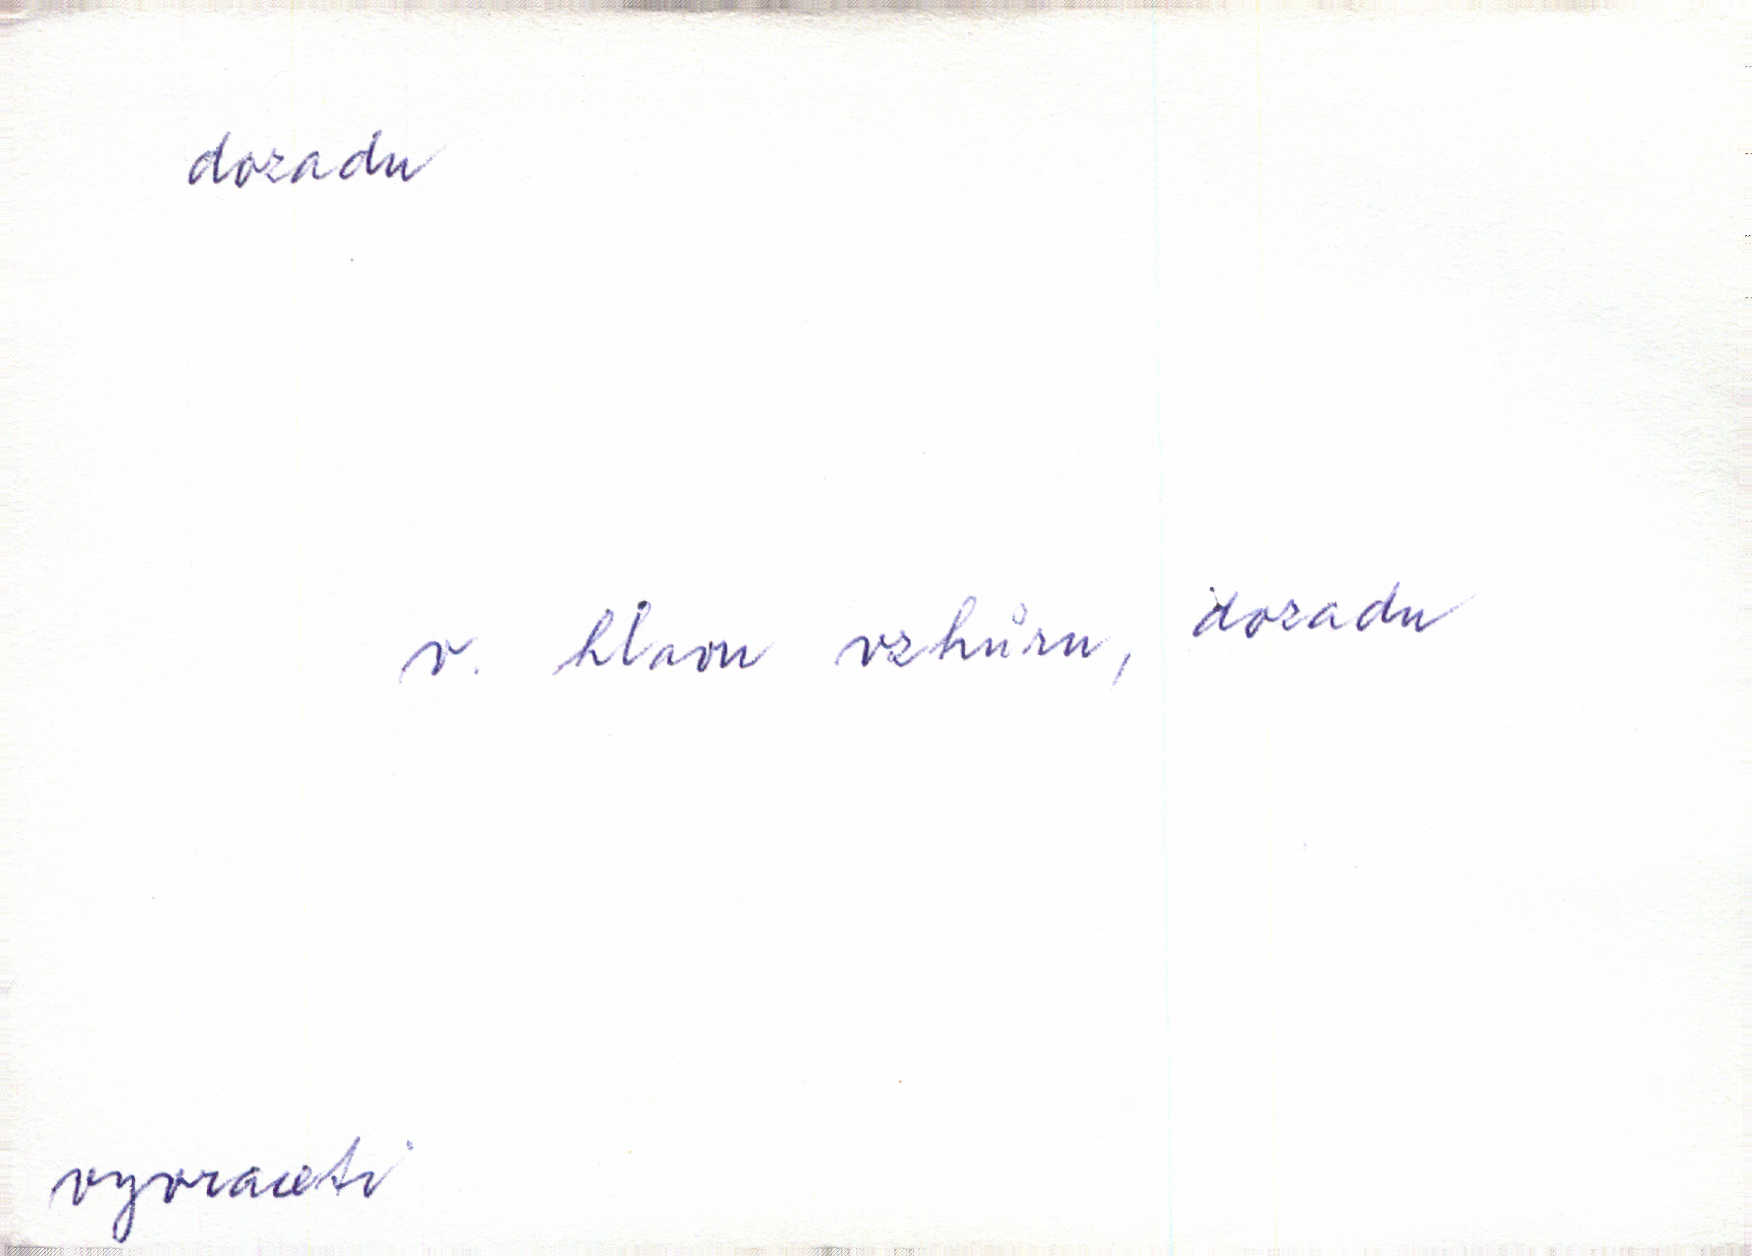 dozadu
v. hlavu vzhůru, dozadu
vyvraceti